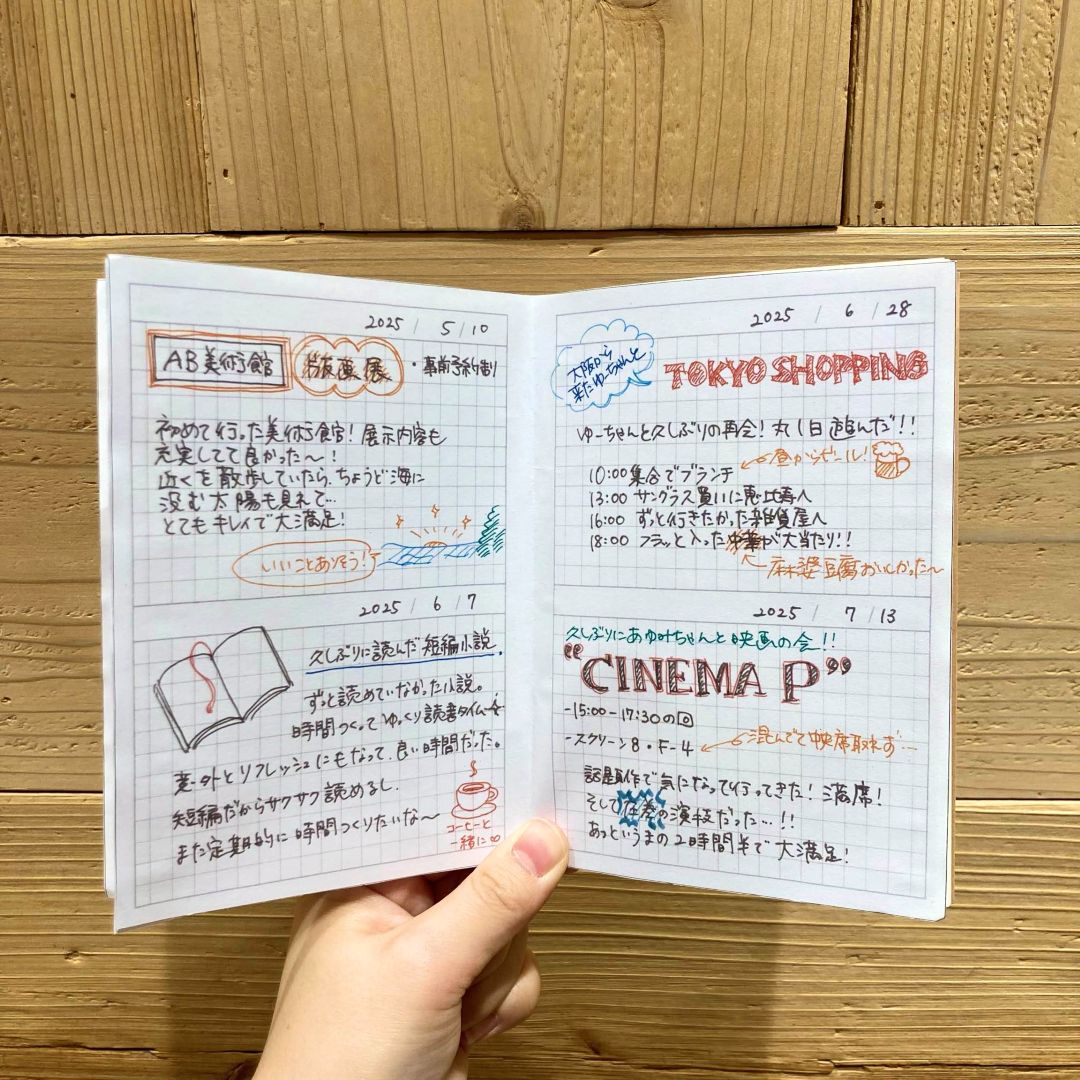 2025 / 5 / 10
AB美術館
版画展
・事前予約制
初めて行った美術館！展示内容も
充実してて良かった〜！
近くを散歩していたら、ちょうど海に
沈む太陽も見れて…
とてもキレイで大満足！
いいことありそう！
2025 / 6 / 7
久しぶりに読んだ短編小説
ずっと読めていなかった小説。
時間つくってゆっくり読書タイム
意外とリフレッシュにもなって、良い時間だった。
短編だからサクサク読めるし、
また定期的に時間つくりたいな〜
コーヒーと
一緒に∞
2025 / 6 / 28
大阪から
来たゆーちゃんと
TOKYO SHOPPING
ゆーちゃんと久しぶりの再会！丸1日遊んだ！！
昼からビール！
10:00 集合でブランチ
13:00 サングラス買いに恵比寿へ
16:00 ずっと行きたかった雑貨屋へ
18:00 フラッと入った中華が大当たり！！
麻婆豆腐おいしかった〜
2025 / 7 / 13
久しぶりにあゆみちゃんと映画の会！！
“CINEMA P”
-15:00-17:30の回
-スクリーン8・F-4
混んでて中央席取れず…
話題作で気になって行ってきた！満席！
そして圧巻の演技だった…！！
あっというまの2時間半で大満足！